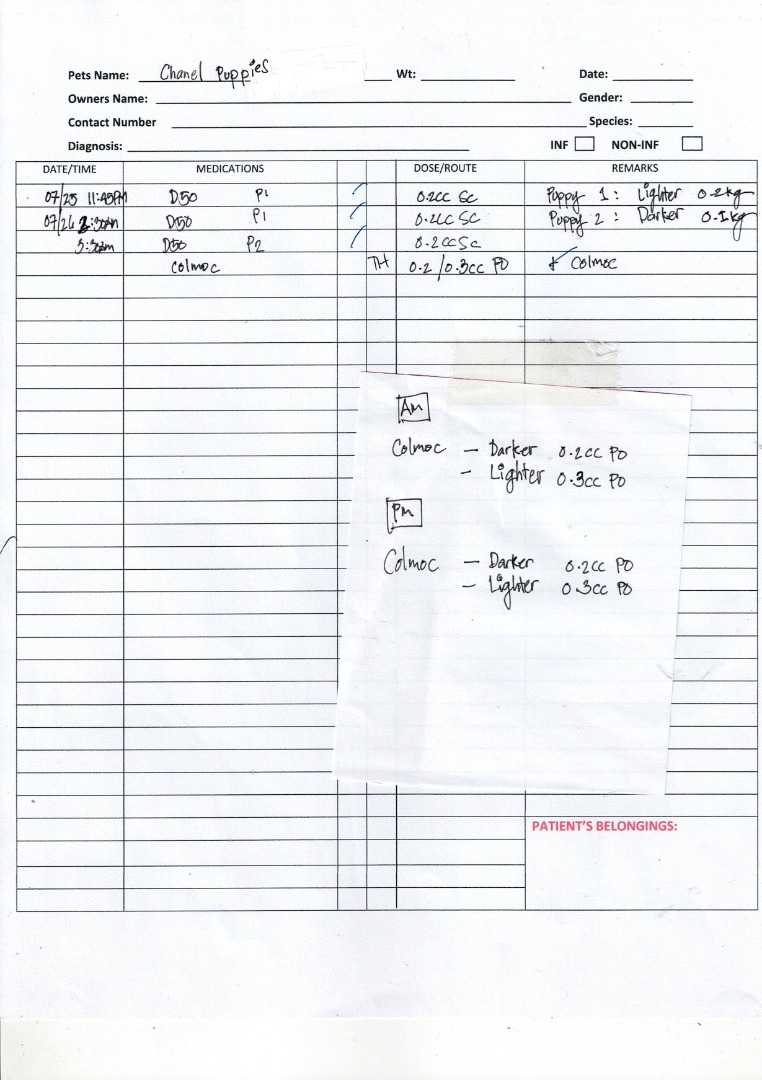 Pets Name: Chanel Puppies Wt: Date:
Owners Name: Gender:
Contact Number Species:
Diagnosis: INF NON-INF
DATE/TIME MEDICATIONS DOSE/ROUTE REMARKS
07/25 11:45PM D50 P1 0.2cc SC Puppy 1: Lighter 0.2kg
07/26 D50 P1 0.2cc SC Puppy 2: Darker 0.1kg
3:30am D50 P2 0.2cc SC
Colmoc TH 0.2/0.3cc PO Colmoc
AM
Colmoc - Darker 0.2cc PO
- Lighter 0.3cc PO
PM
Colmoc - Darker 0.2cc PO
- Lighter 0.3cc PO
PATIENT'S BELONGINGS: